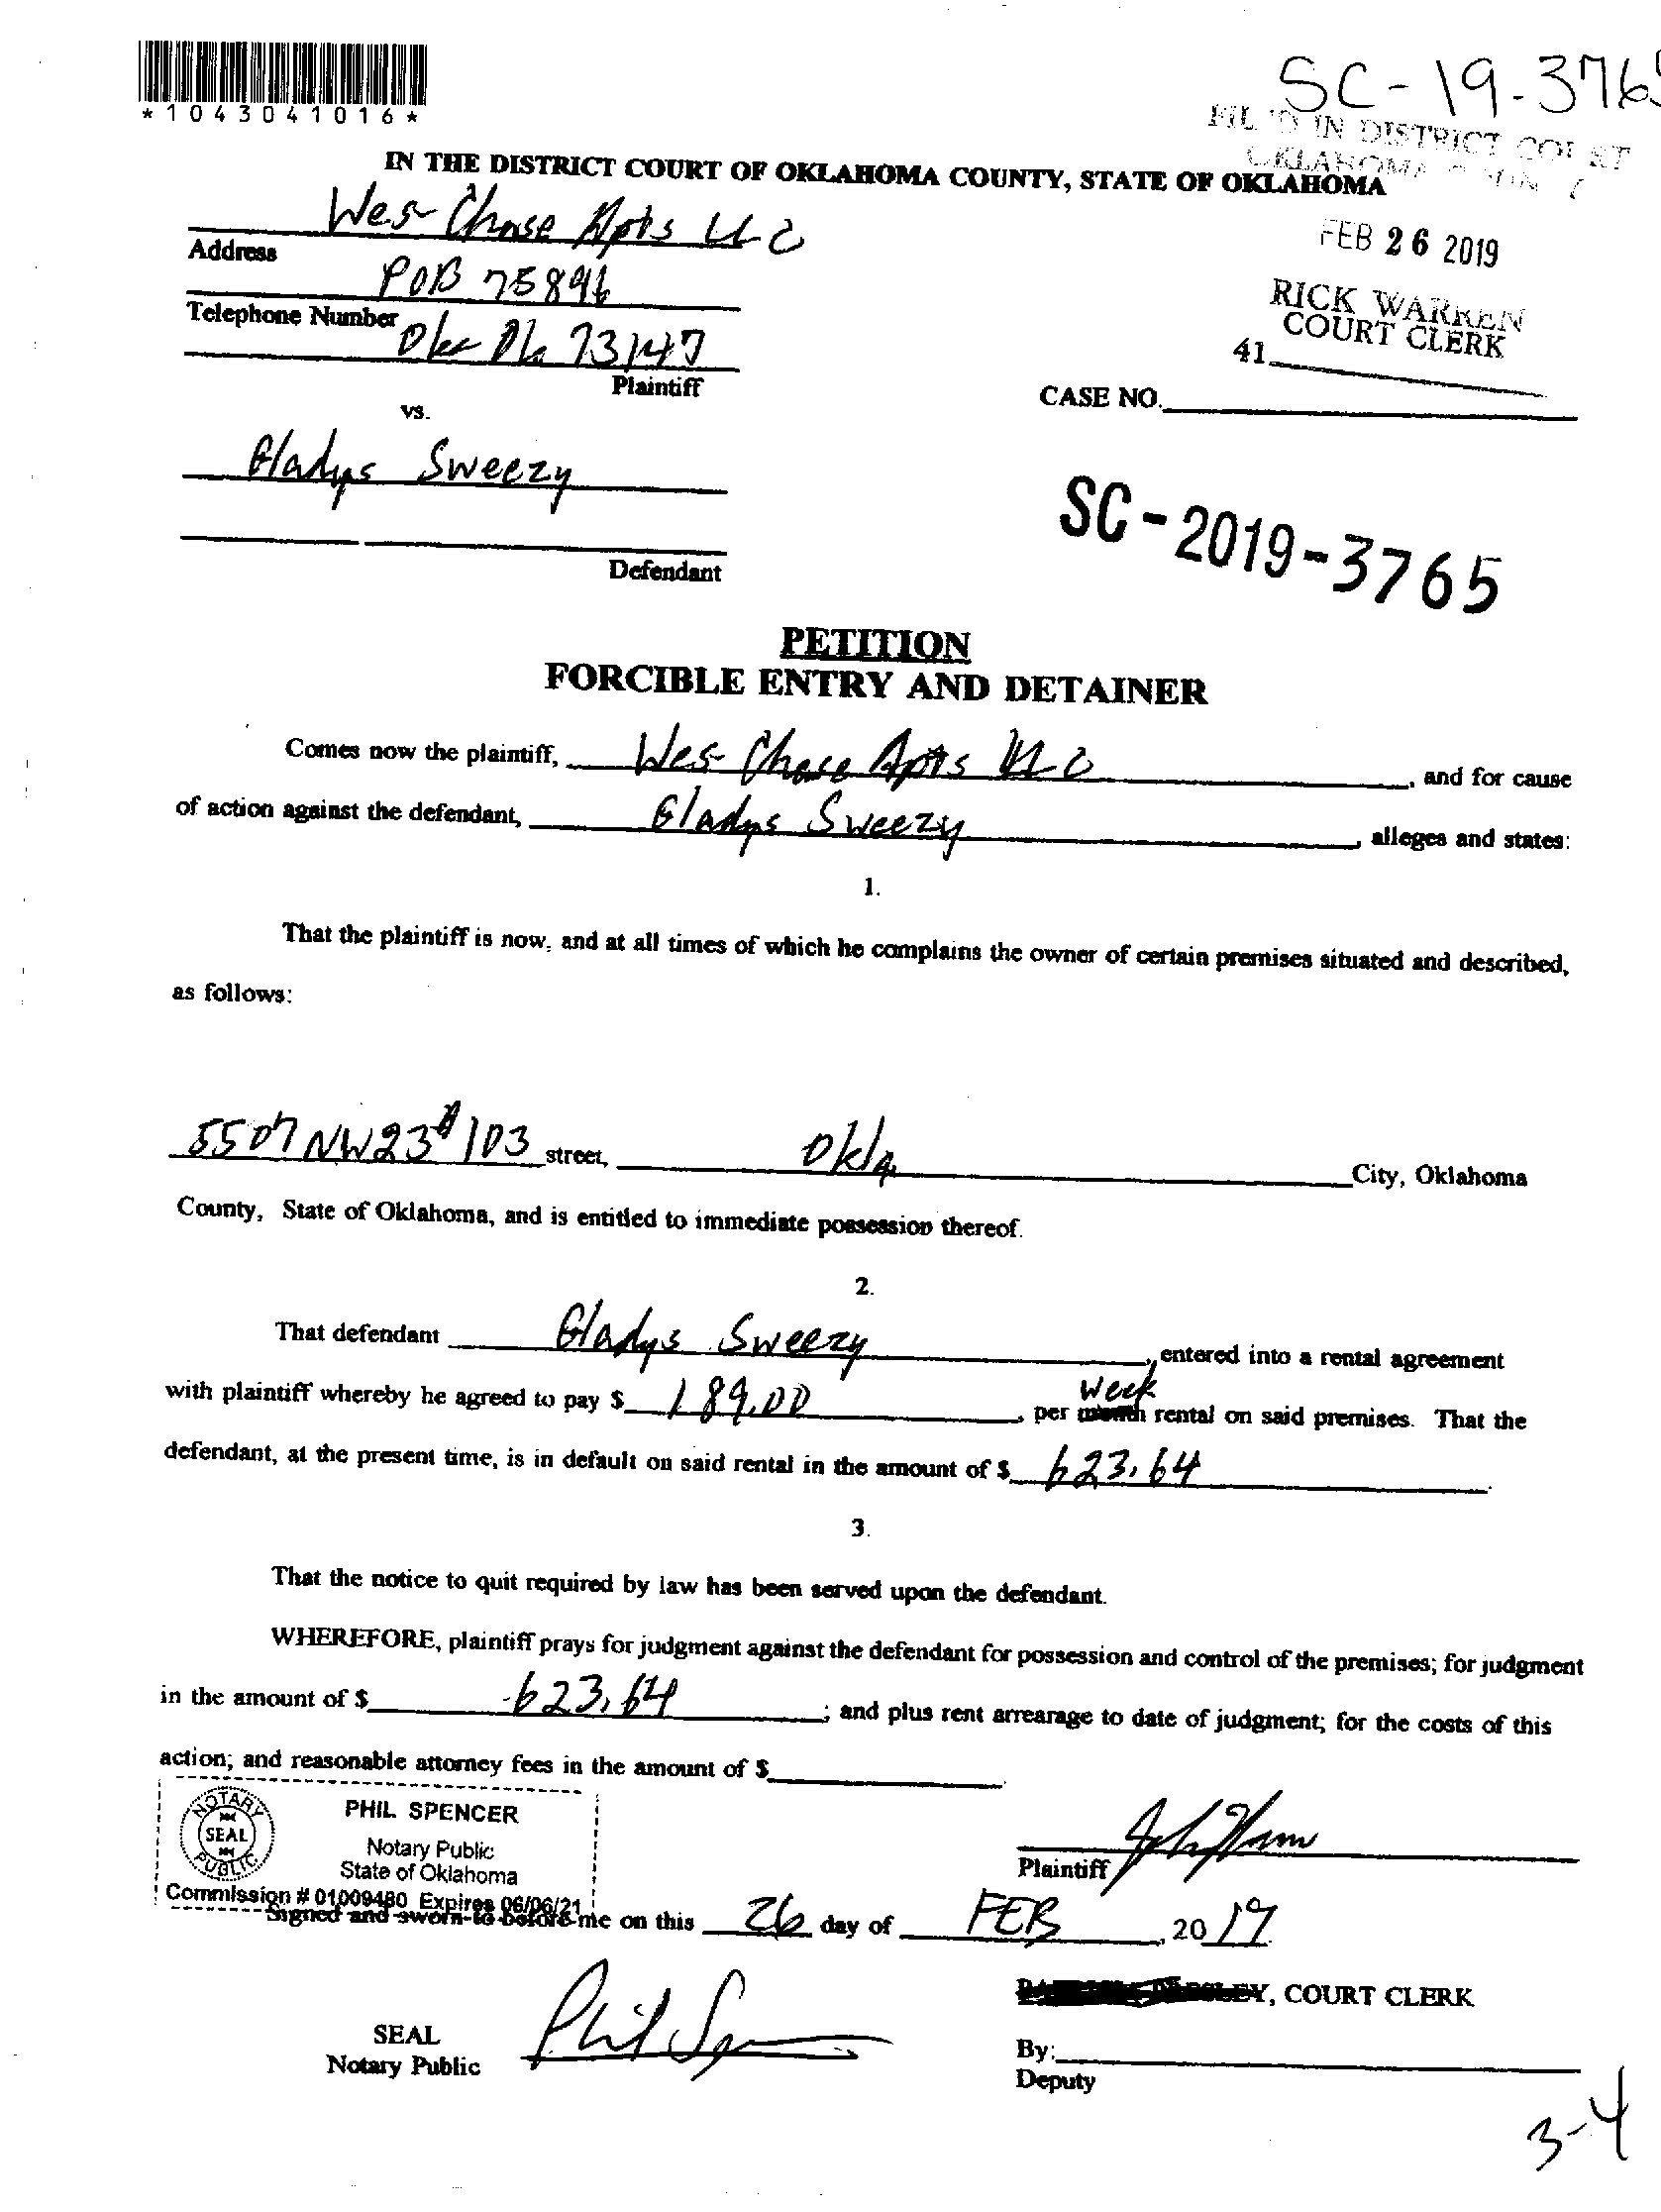 *1043041016*
SC-19-3765
FILED IN DISTRICT COURT
OKLAHOMA COUNTY
IN THE DISTRICT COURT OF OKLAHOMA COUNTY, STATE OF OKLAHOMA
Wes Chase Apts LLC
FEB 26 2019
Address
POB 75896
RICK WARREN
COURT CLERK
Telephone Number
Okc Ok 73147
41
Plaintiff
CASE NO.
vs.
Gladys Sweezy
SC-2019-3765
Defendant
PETITION
FORCIBLE ENTRY AND DETAINER
Comes now the plaintiff, Wes Chase Apts LLC, and for cause
of action against the defendant, Gladys Sweezy, alleges and states:
1.
That the plaintiff is now, and at all times of which he complains the owner of certain premises situated and described,
as follows:
5507 NW 23 #103 street, Okla. City, Oklahoma
County, State of Oklahoma, and is entitled to immediate possession thereof.
2.
That defendant Gladys Sweezy, entered into a rental agreement
with plaintiff whereby he agreed to pay $ 189.00, per month week rental on said premises. That the
defendant, at the present time, is in default on said rental in the amount of $ 623.64.
3.
That the notice to quit required by law has been served upon the defendant.
WHEREFORE, plaintiff prays for judgment against the defendant for possession and control of the premises; for judgment
in the amount of $ 623.64; and plus rent arrearage to date of judgment; for the costs of this
action; and reasonable attorney fees in the amount of $
NOTARY PUBLIC SEAL
PHIL SPENCER
Notary Public
State of Oklahoma
Commission # 01009480 Expires 06/06/21
Plaintiff
Signed and sworn to before me on this 26 day of FEB, 2019
, COURT CLERK
SEAL
Notary Public
Phil Spencer
By:
Deputy
3-4